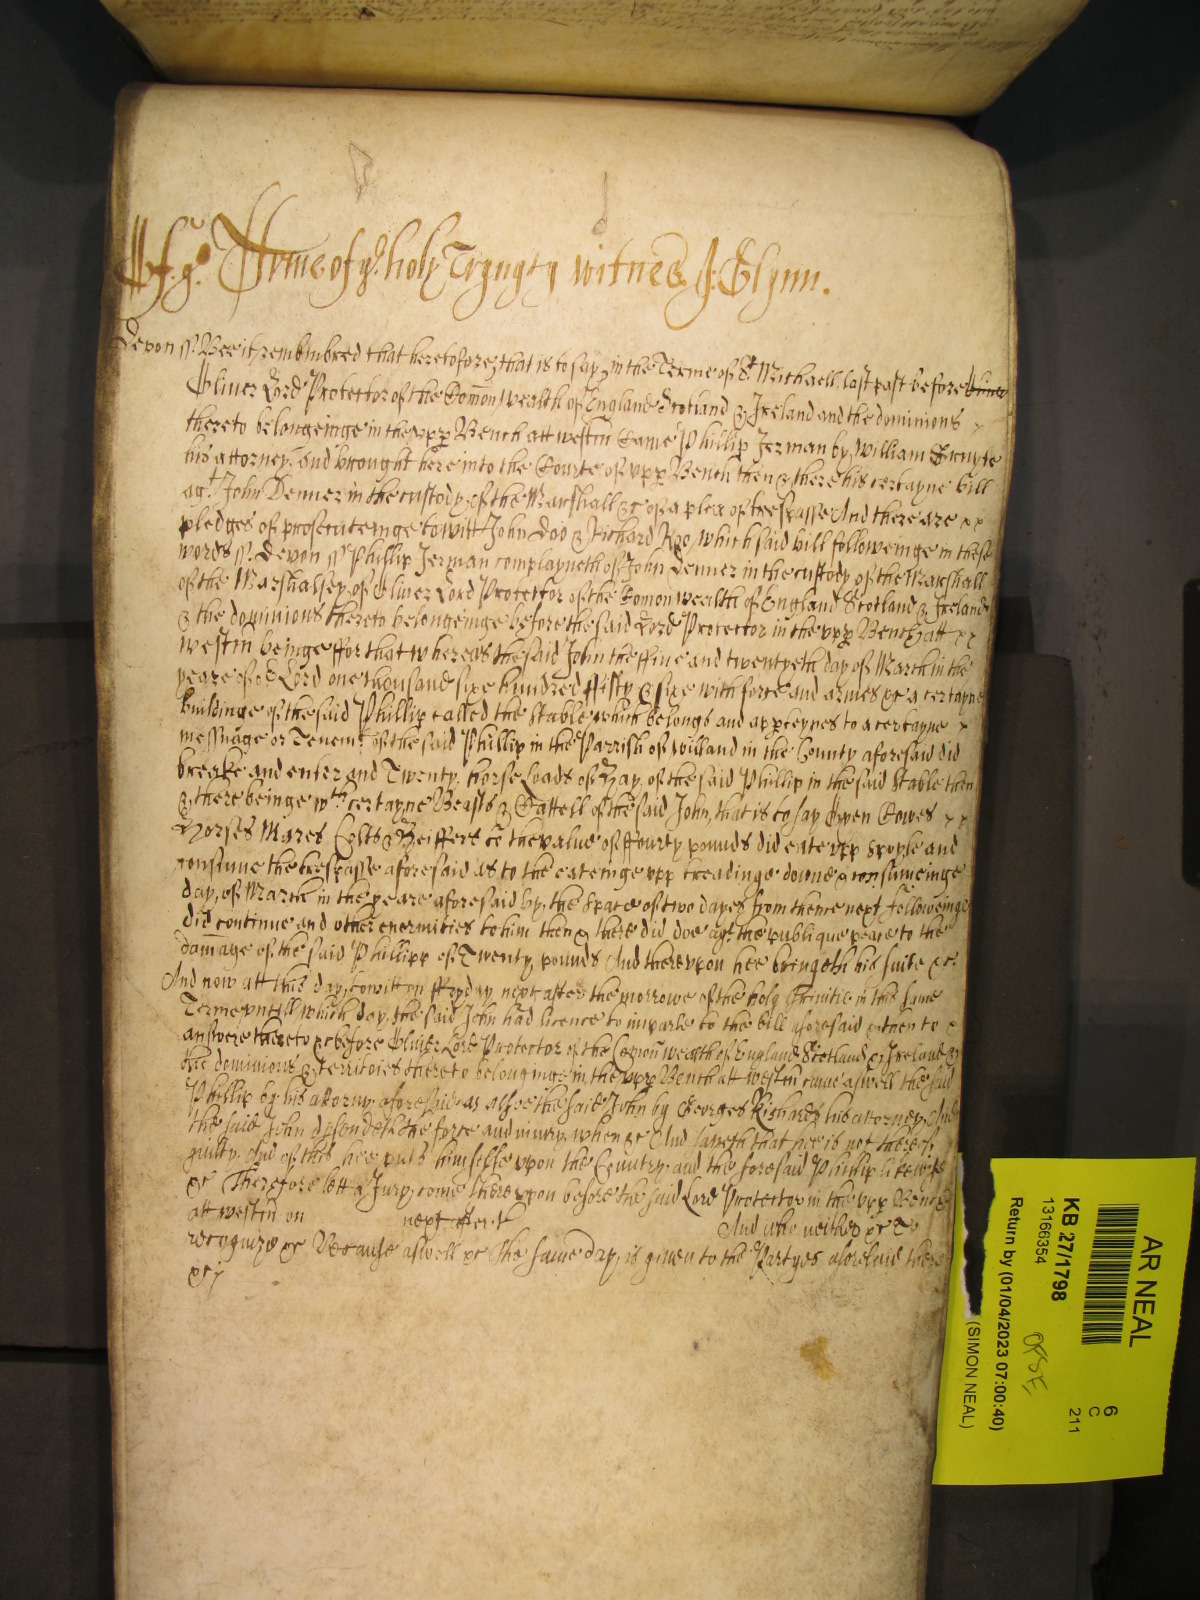 Of ye Terme of ye holy Trynyty witnes J: Glynn.
Devon ss. Bee it remembred that heretofore that is to say in the Terme of St Michaell last past before Oliver
Oliver Lord Protector of the Comon Wealth of England Scotland & Ireland and the dominions
thereto belongeinge in the upp Bench att westm Came Phillip Jerman by William
his attorney and brought here into the Courte of upp Bench then & there his certayne bill
agt John Denner in the custody of the Marshall &c of a plea of trespasse And there are
pledges of prosecuteinge to witt John Doo & Richard Roo, which said bill followeinge in these
words ss. Devon ss Phillip Jerman complayneth of John Denner in the custody of the Marshall
of the Marshalsey of Oliver Lord Protector of the Comon wealth of England Scotland & Ireland
& the dominions thereto belongeinge before the said Lord Protector in the upp Bench att
westm beinge ffor that whereas the said John the ffive and twentyeth day of March in the
yeare of or Lord one thousand sixe hundred ffifty & sixe with force and armes &c a certayne
buildinge of the said Phillip called the Stable which belongs and apperteynes to a certayne
messuage or Tenemt of the said Phillip in the Parrish of Willand in the County aforesaid did
breake and enter and Twenty horse Loads of Hay of the said Phillip in the said Stable then
& there beinge wth certayne Beasts & Cattell of the said John, that is to say Oxen Cowes
Horses Mares Colts & Heiffers to the value of ffourty pounds did eate upp spoyle and
consume the trespasse aforesaid as to the eateinge upp treadinge downe & consumeinge
day of March in the yeare aforesaid by the space of two dayes from thence next followeinge
did continue and other enormities to him then & there did doe agt the publique peace to the
damage of the said Phillipp of Twenty pounds And thereupon hee bringeth his suite &c.
And now att this day, to witt on ffryday next after the morrowe of the holy Trinitie in this same
Terme untill which day the said John had licence to imparle to the bill aforesaid & then to
answere thereto &c before Oliver Lord Protector of the Comon wealth of England Scotland & Ireland &
the dominions & territories thereto belonginge in the upp Bench att westm came aswell the said
Phillip by his attorny aforesaid as alsoe the said John by Georges Richards his attorney And
the said John defendeth the force and iniury when &c And sayeth that hee is not thereof
guilty And of this hee puts himselfe upon the Country and the foresaid Phillip likewise
&c Therefore lett a Jury come thereupon before the said Lord Protector in the upp Bench
att westm on next after And who neither &c To
recognize &c Because aswell &c The same day is given to the Partyes aforesaid there
&c
AR NEAL
KB 27/1798
13166354
Return by (01/04/2023 07:00:40)
(SIMON NEAL)
6
C
211